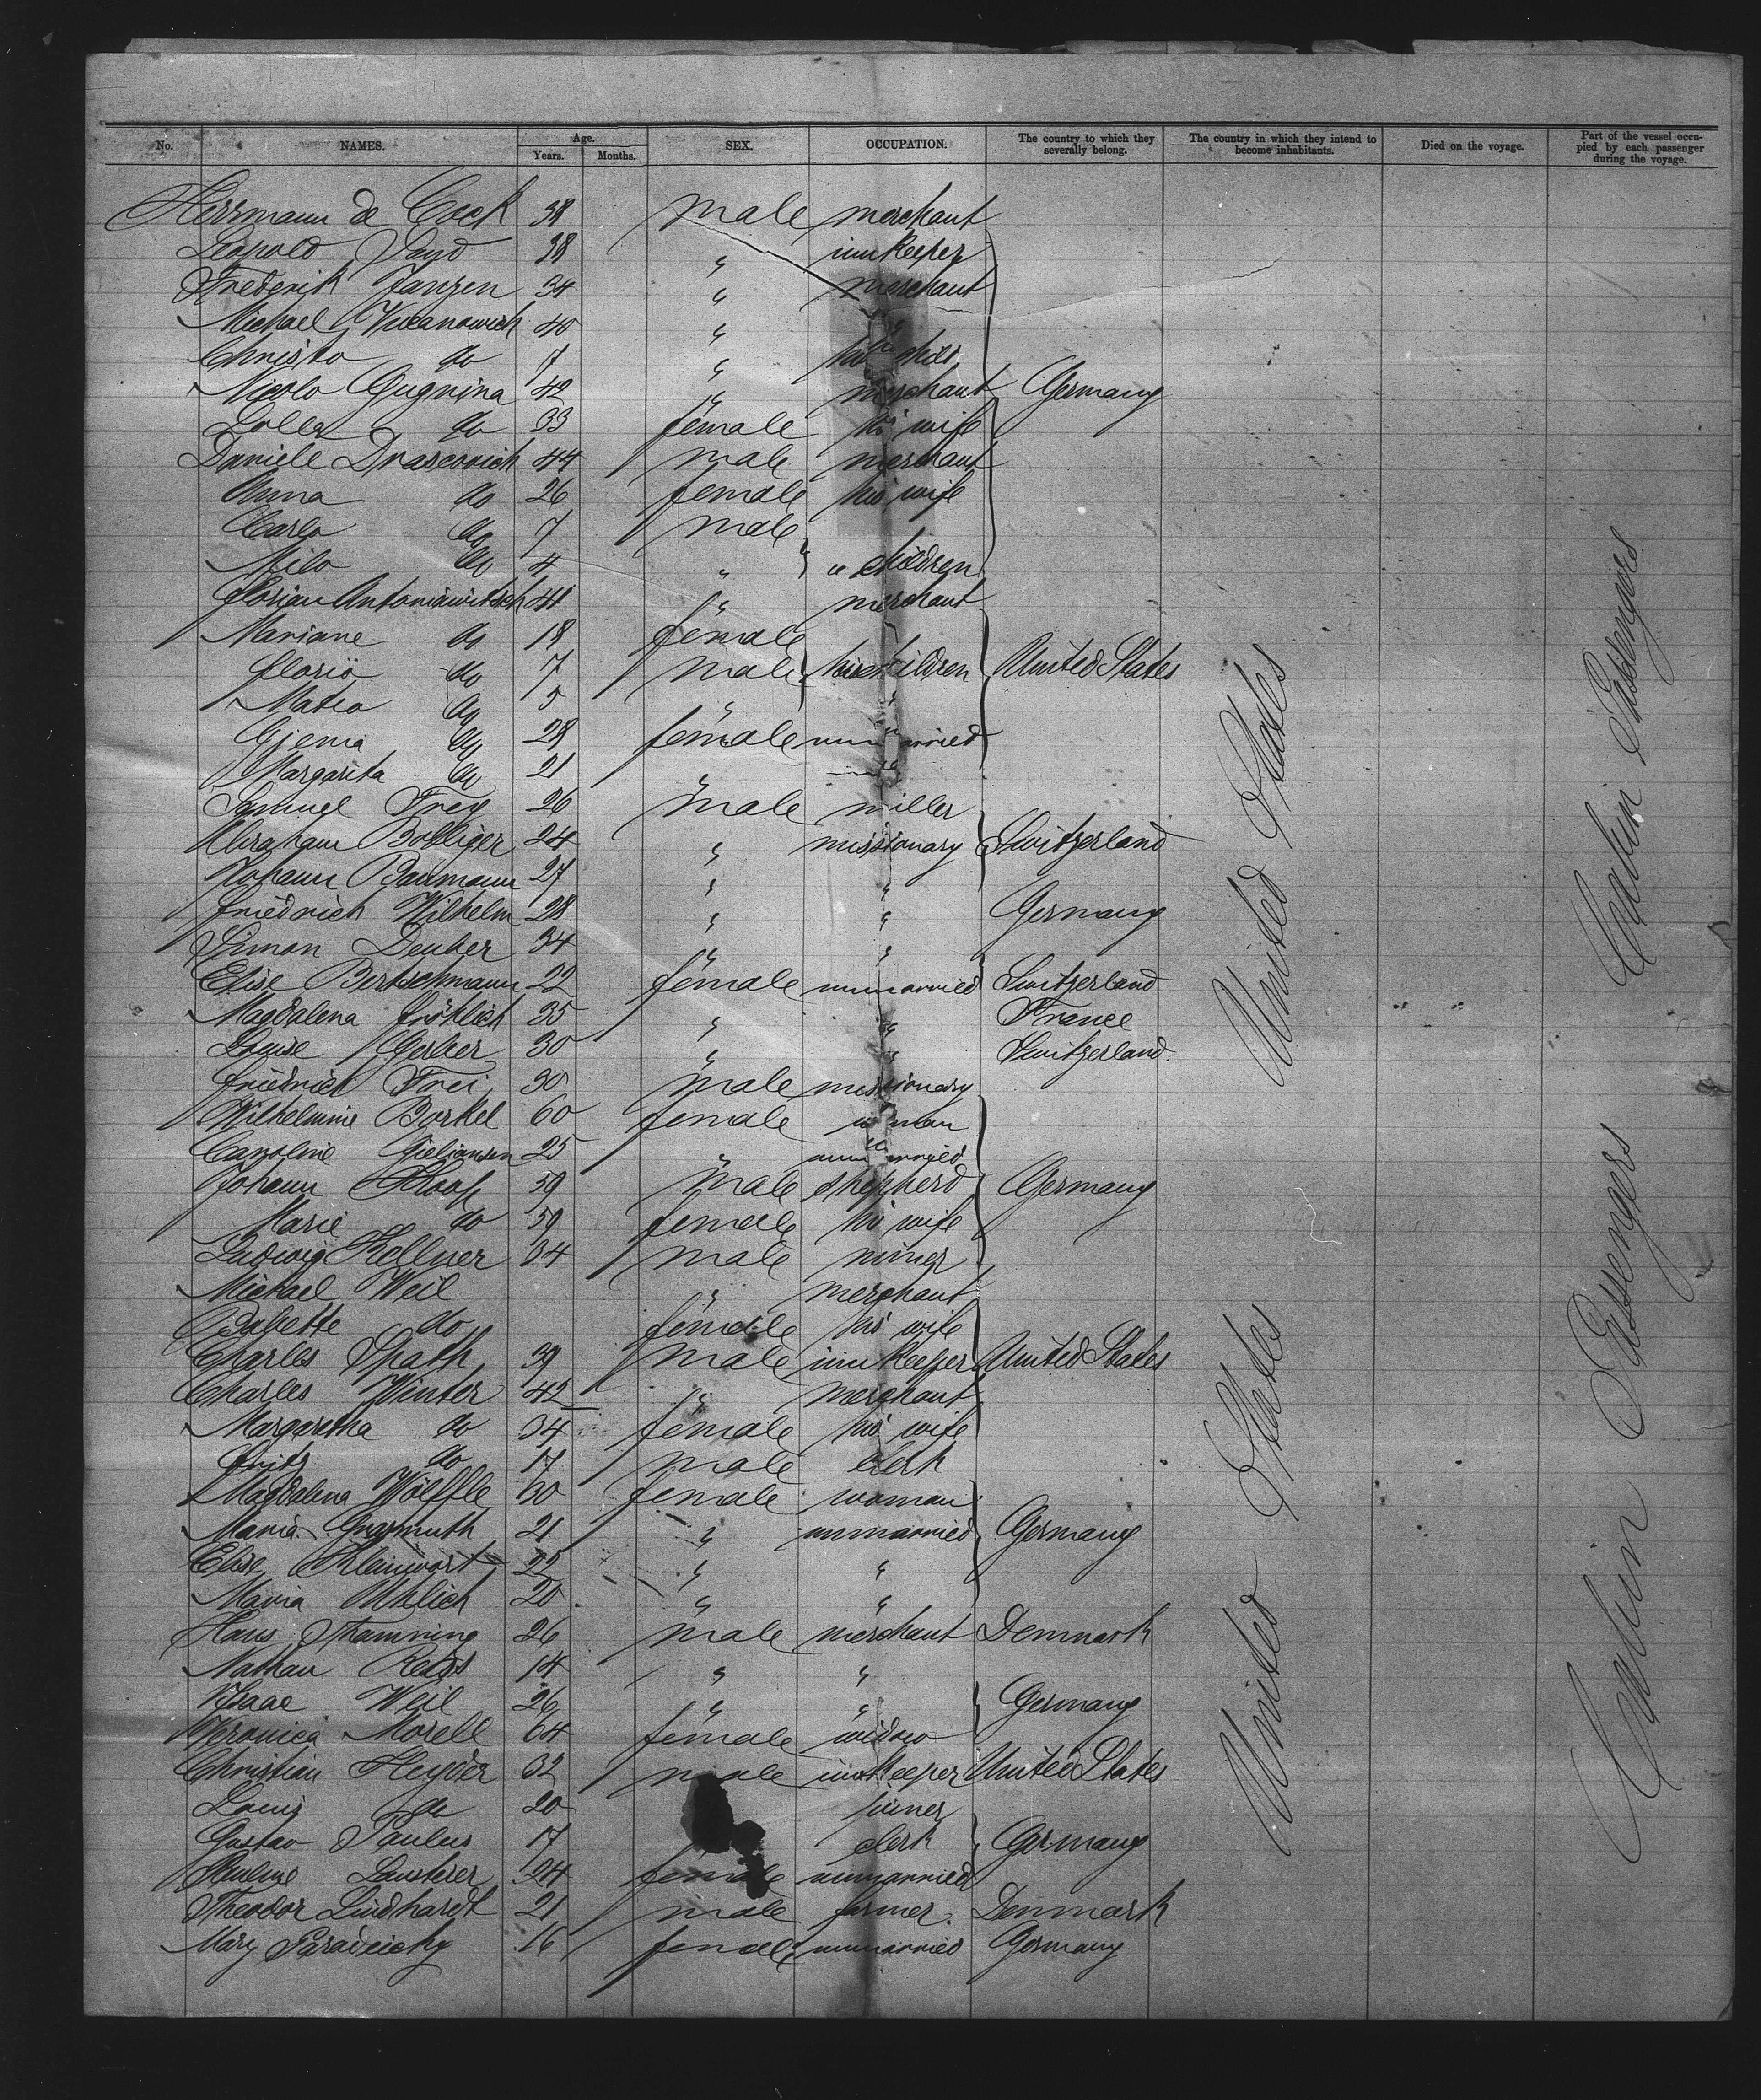 No. NAMES. Age. Years. Months. SEX. OCCUPATION. The country to which they severally belong. The country in which they intend to become inhabitants. Died on the voyage. Part of the vessel occupied by each passenger during the voyage.
Herrmann de Cock 38 male merchant
Leopold 38 " innkeeper
Frederik Janzen 34 " merchant
Michael Vucanowich 40 " "
Christo do 7 " his child
Nicolo Gugnina 42 " merchant Germany
Lolla do 33 female his wife
Daniele Drascovich 44 male merchant
Anna do 26 female his wife
Carlo do 7 male
Milo do 4 " " children
Florian Antoniawitsch 41 " merchant
Mariane do 18 female
Florio do 7 male his children United States
Mateo do 5 "
Gjenia do 28 female unmarried
Margarita do 21 " "
Samuel Frey 26 male miller
Abraham Bolliger 24 " missionary Switzerland
Johann Baumann 27 " "
Friedrich Wilhelm 28 " " Germany
Simon Deuber 34 " "
Elise Bertschmann 22 female unmarried Switzerland
Magdalena Fröhlich 35 " " France
Louise Gerber 30 " " Switzerland
Friedrich Frei 30 male missionary
Wilhelmine Borkel 60 female woman
Caroline 25 " unmarried
Johann Kloof 59 male shepherd Germany
Marie do 59 female his wife
Ludwig Kollner 34 male miner
Michael Weil " merchant
Babette do female his wife
Charles Spath 39 male innkeeper United States
Charles Winter 42 " merchant
Margaretha do 34 female his wife
Fritz do 17 male clerk
Magdalena Wölffle 30 female woman
Maria 21 " unmarried Germany
Elise Kleinwort 22 " "
Maria Uhlich 20 " "
Hans Stamning 26 male merchant Denmark
Nathan Reiss 14 " "
Isaac Weil 26 " " Germany
Veronica Morell 64 female widow
Christian Heyder 32 male innkeeper United States
Louis do 20 joiner
Gustav Paulus 17 clerk Germany
Pauline Lausterer 24 female unmarried
Theodor Lindhardt 21 male farmer Denmark
Mary 16 female unmarried Germany
United States
United States
Cabin Passengers
Cabin Passengers